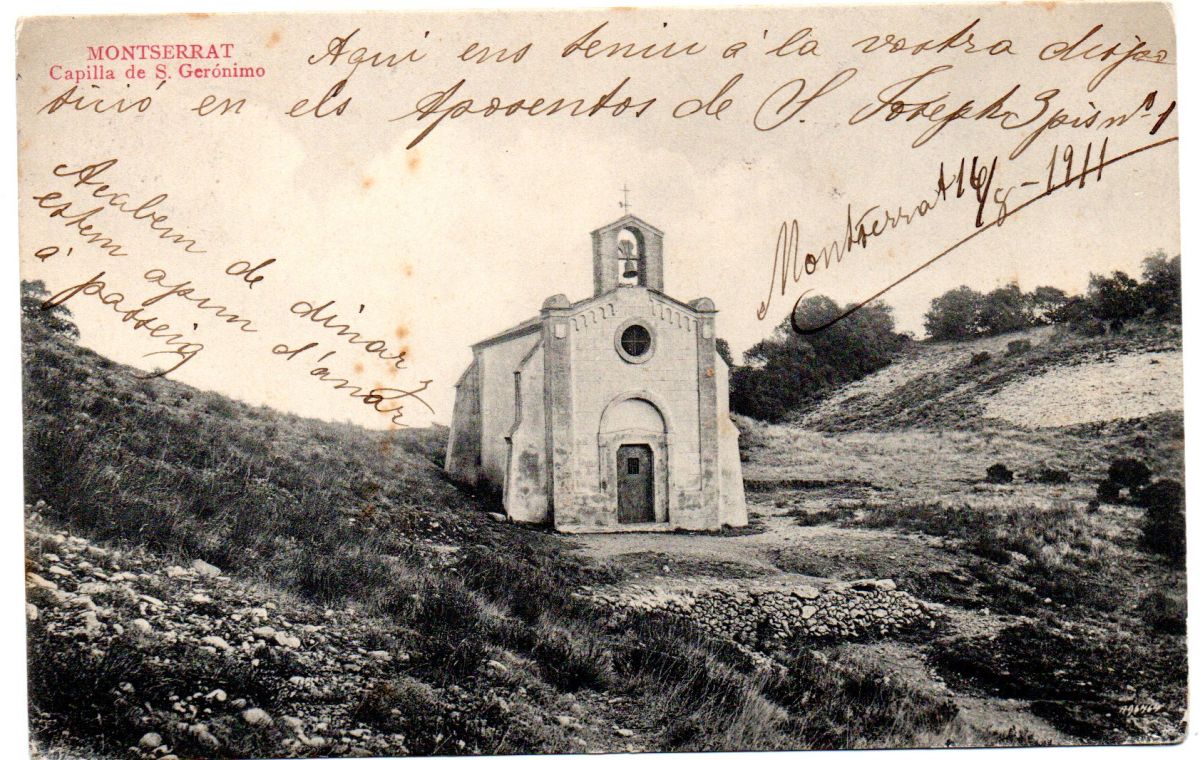 MONTSERRAT
Capilla de S. Gerónimo
Aqui ens teniu á la vostra dispo
sició en els Aposentos de S. Joseph 3 pis nº 1
Montserrat 16/8-1911
Acabem de dinar y
estem apunt d'anar
á passeig